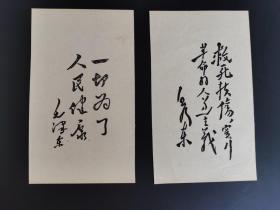 一切为了
人民健康
毛泽东
救死扶伤，实行
革命的人道主义
毛泽东